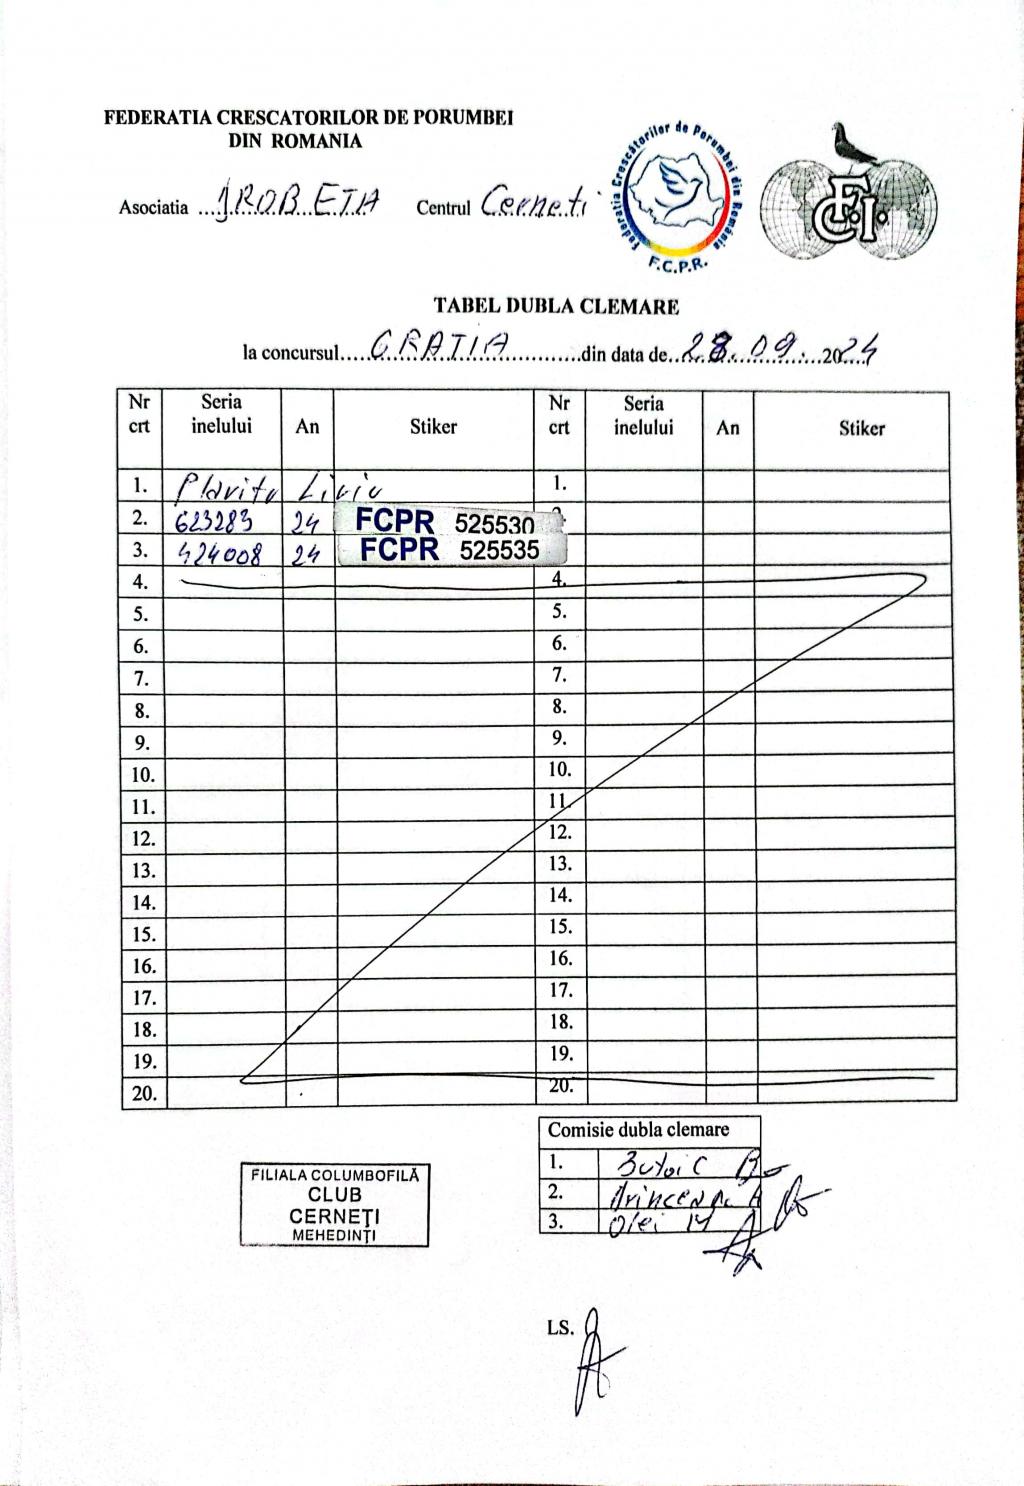 FEDERATIA CRESCATORILOR DE PORUMBEI
DIN ROMANIA
Asociatia ...DROBETA Centrul Cerneti
Federatia Crescătorilor de Porumbei din România
F.C.P.R.
F.C.I.
TABEL DUBLA CLEMARE
la concursul.....GRATIA.....din data de..28.09.2024
Nr crt Seria inelului An Stiker Nr crt Seria inelului An Stiker
1. Plavitu Liviu 1.
2. 623283 24 FCPR 525530 2.
3. 424008 24 FCPR 525535
4. 4.
5. 5.
6. 6.
7. 7.
8. 8.
9. 9.
10. 10.
11. 11.
12. 12.
13. 13.
14. 14.
15. 15.
16. 16.
17. 17.
18. 18.
19. 19.
20. 20.
Comisie dubla clemare
1. Butoi C
2.
3. Olei M
FILIALA COLUMBOFILĂ
CLUB
CERNEȚI
MEHEDINȚI
LS.